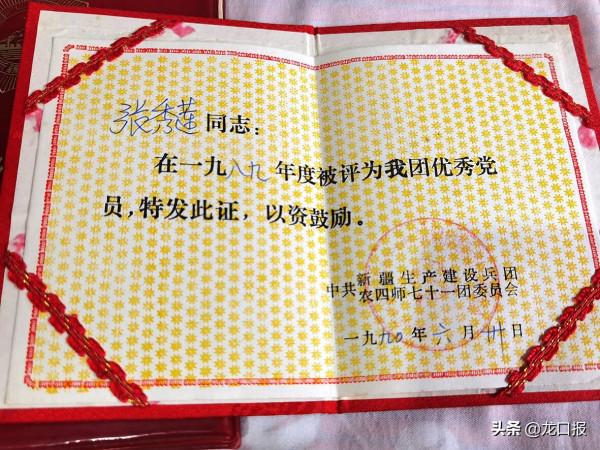 张秀莲同志：
在一九八九年度被评为我团优秀党
员，特发此证，以资鼓励。
中共新疆生产建设兵团
农四师七十一团委员会
一九九〇年六月卅日
头条@龙口报